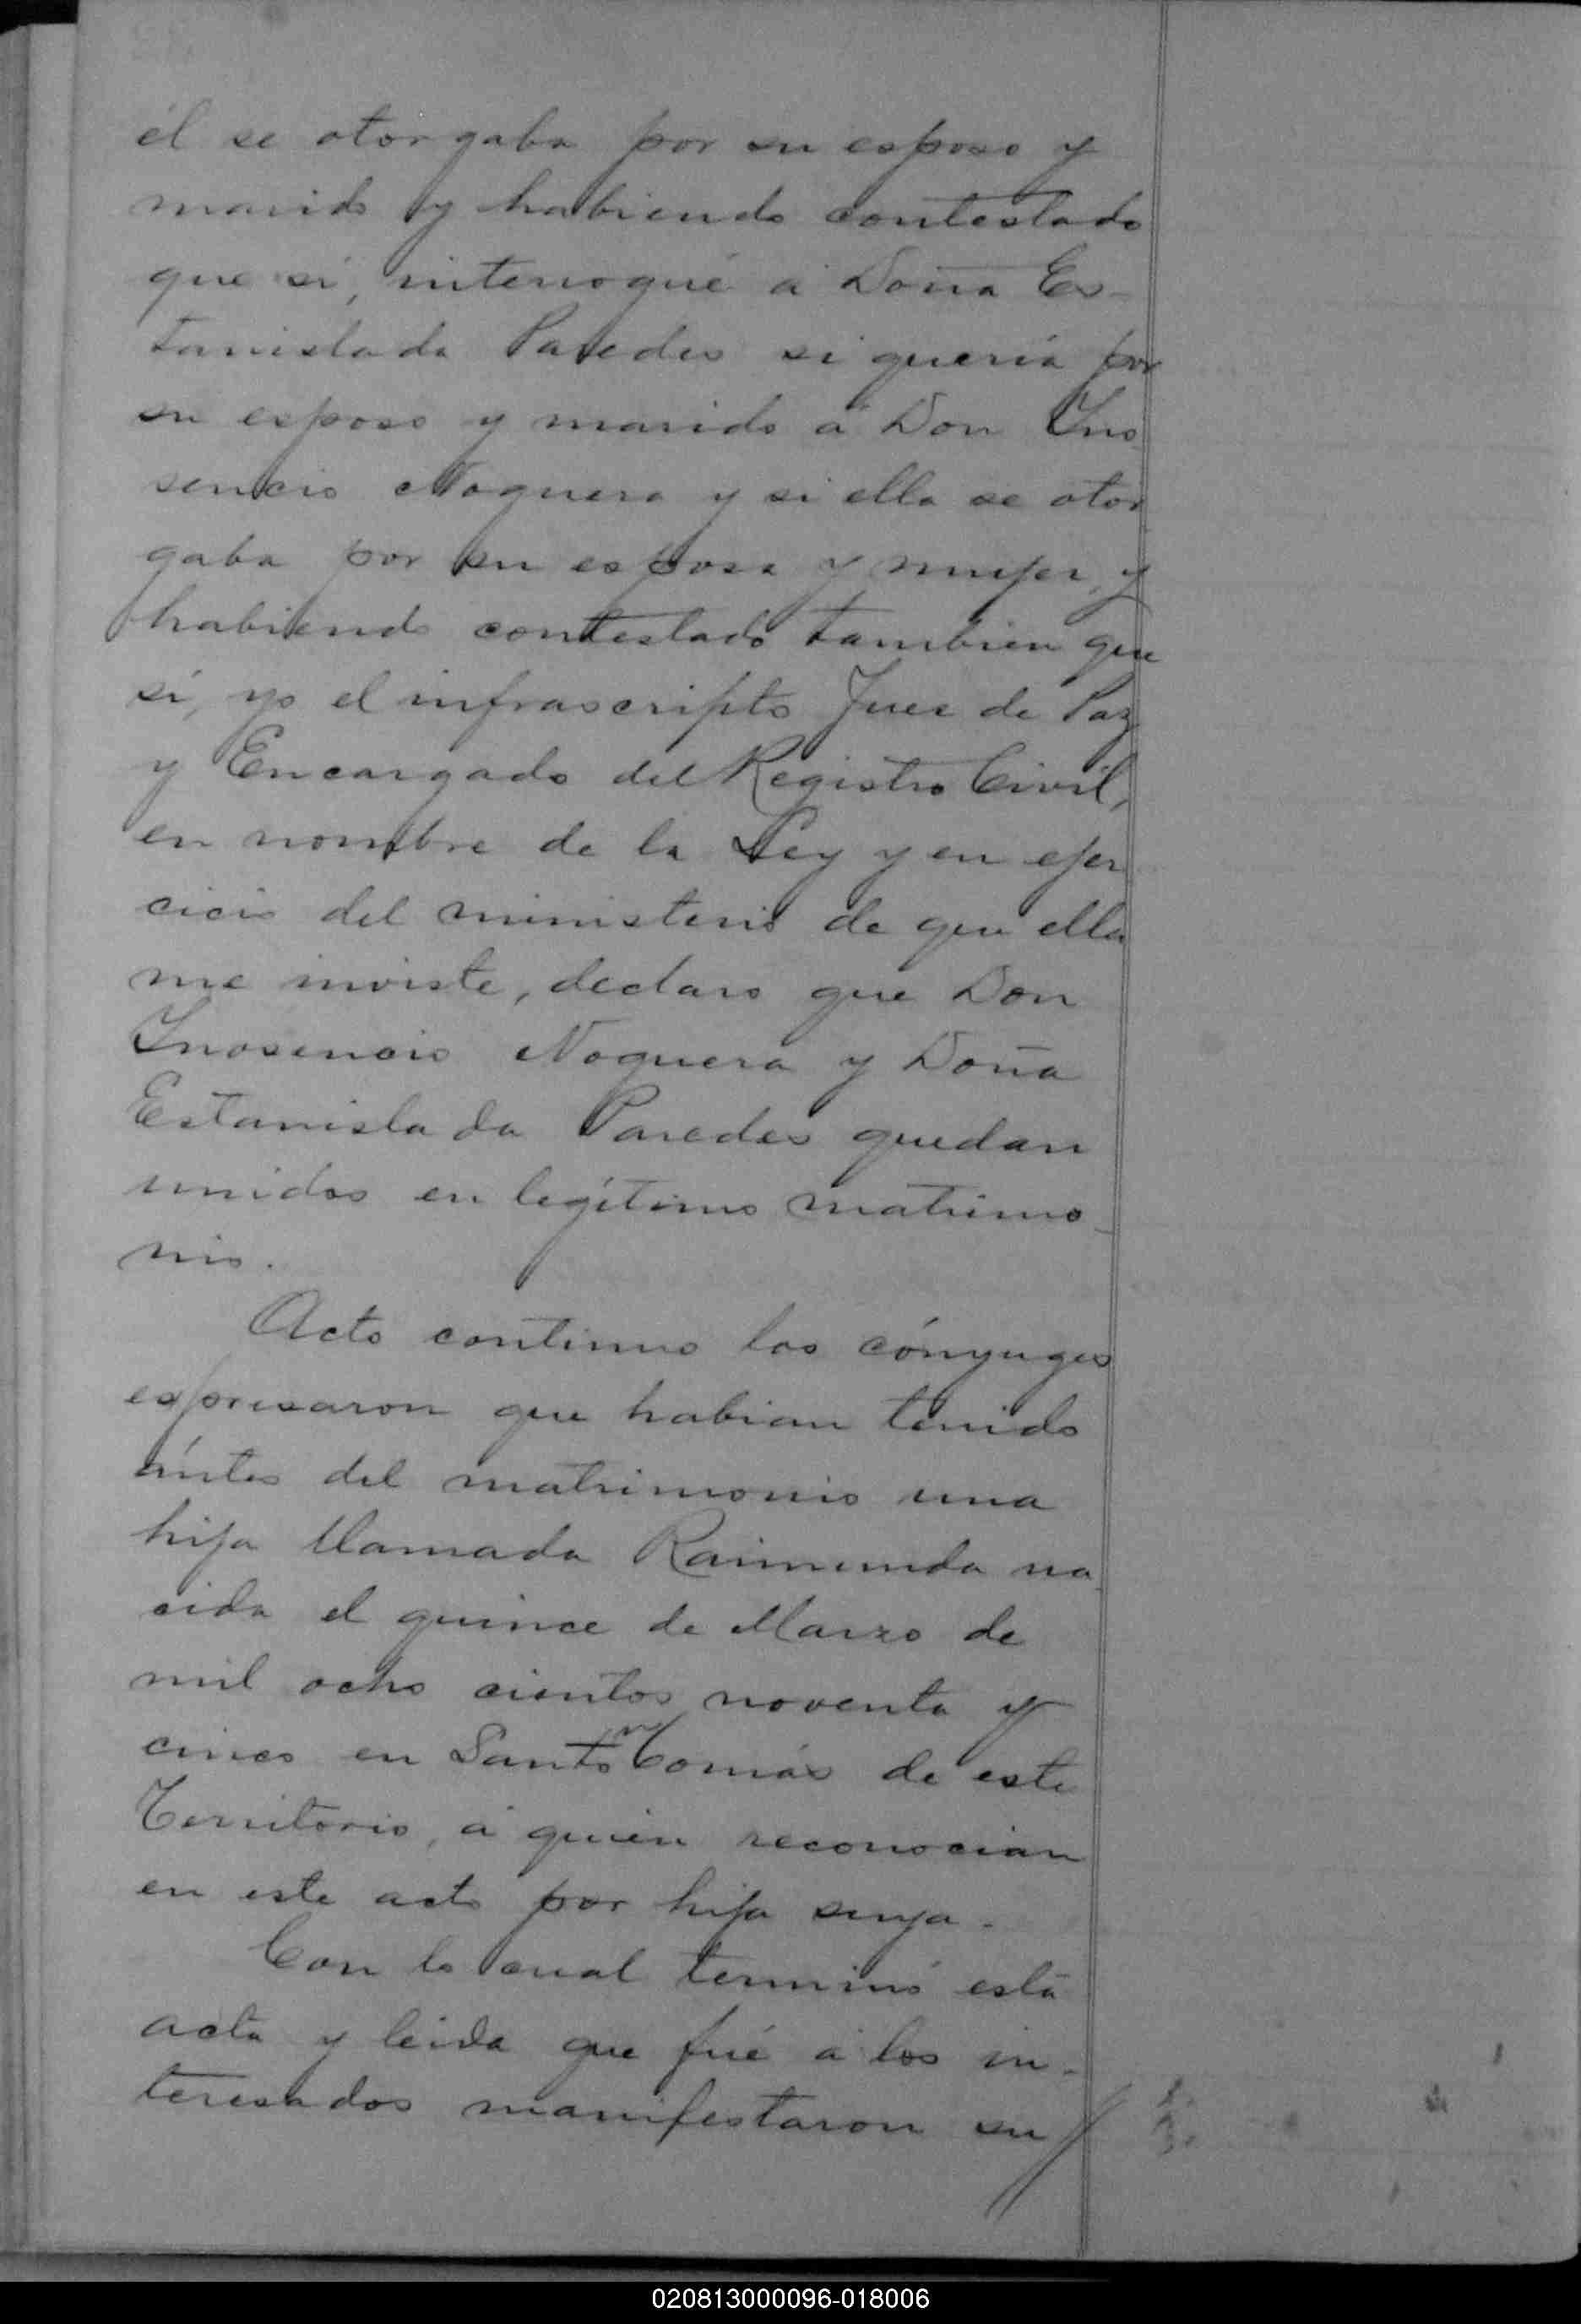 él se otorgaba por su esposo y
marido y habiendo contestado
que sí, interrogué á Doña Es-
tanislada Paredes si quería por
su esposo y marido á Don Ino
sencio Noguera y si ella se otor
gaba por su esposa y mujer, y
habiendo contestado tambien que
sí, yo el infrascripto Juez de Paz
y Encargado del Registro Civil,
en nombre de la Ley y en ejer
cicio del ministerio de que ella
me inviste, declaro que Don
Inosencio Noguera y Doña
Estanislada Paredes quedan
unidos en legítimo matrimo-
nio.
Acto continuo los cónyuges
espresaron que habian tenido
ántes del matrimonio una
hija llamada Raimunda na-
cida el quince de Marzo de
mil ocho cientos noventa y
cinco en Santo Tomás de este
Territorio, á quien reconocian
en este acto por hija suya.
Con lo cual terminó esta
acta y leida que fué á los in-
teresados manifestaron su
020813000096-018006